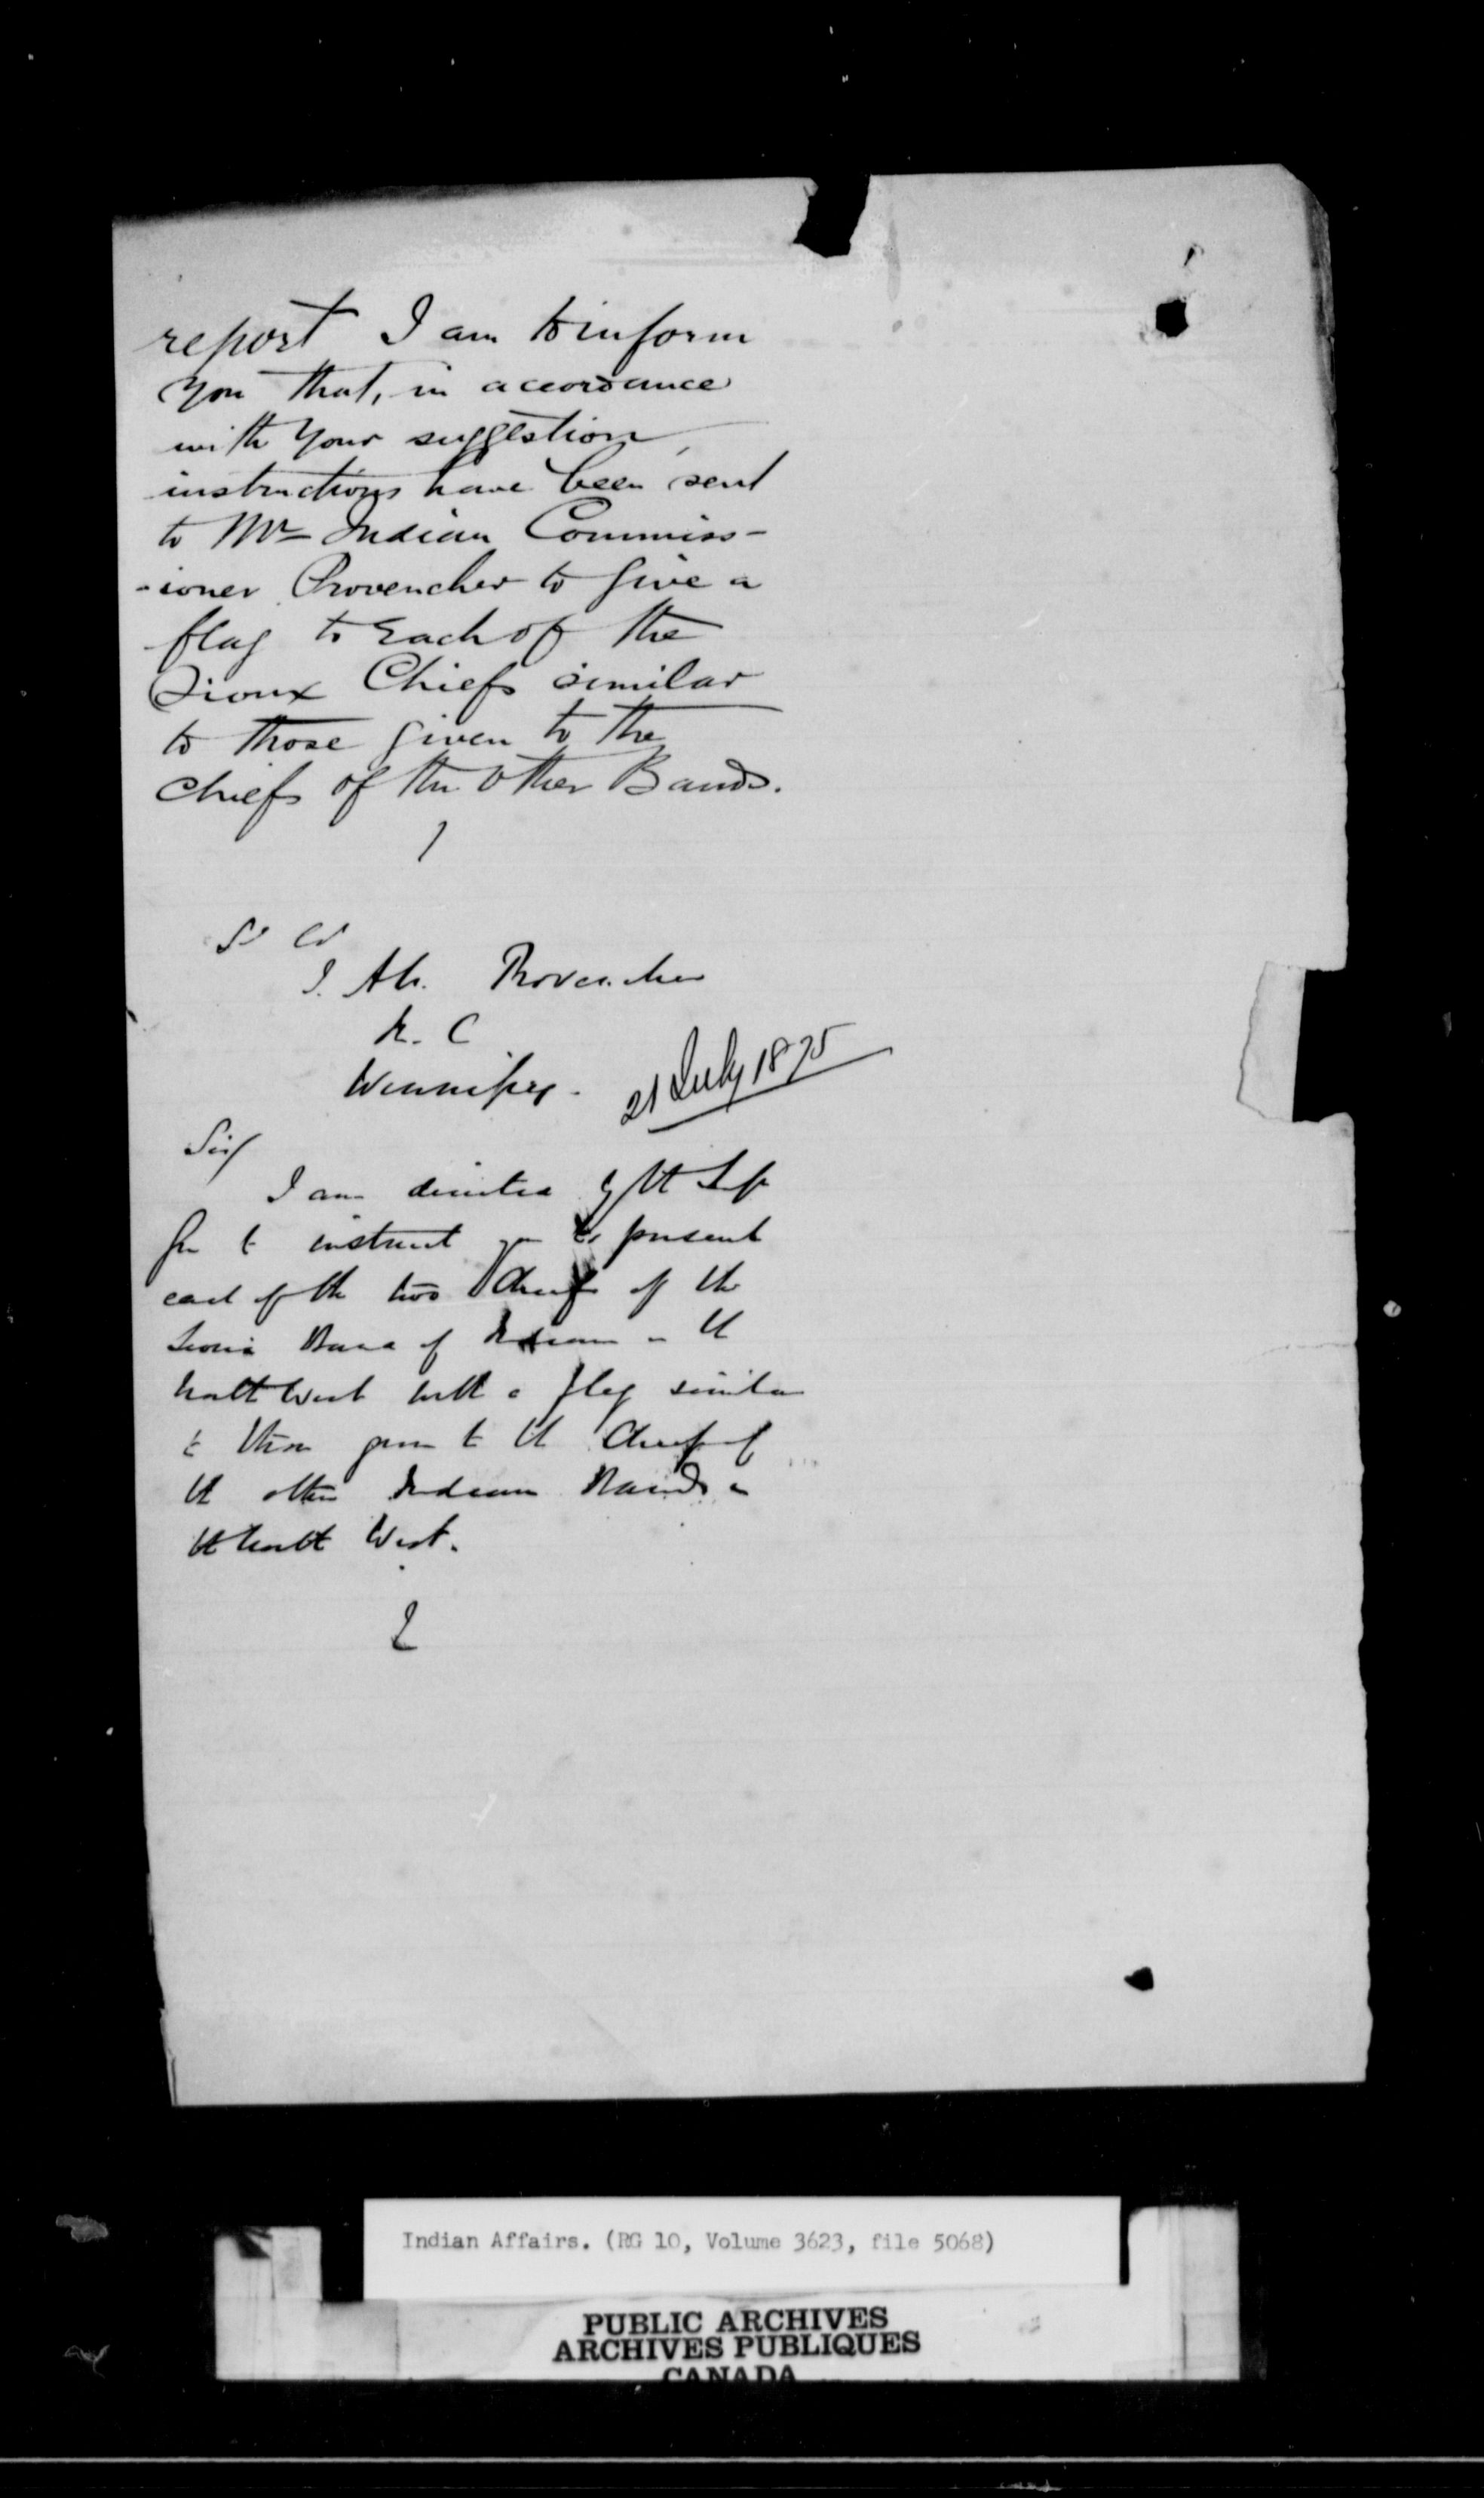 report I am to inform
you that, in accordance
with your suggestion,
instructions have been sent
to Mr Indian Commiss-
-ioner Provencher to give a
flag to Each of the
Sioux Chiefs similar
to those given to the
chiefs of the other Bands.
J. Provencher
Winnipeg.
21 July 1875
Sir/
I am directed by the
to instruct you to present
each of the two Chiefs of the
Sioux Band of Indians in the
North West with a flag similar
to those given to the Chiefs of
the other Indian Bands in
the North West.
Indian Affairs. (RG 10, Volume 3623, file 5068)
PUBLIC ARCHIVES
ARCHIVES PUBLIQUES
CANADA